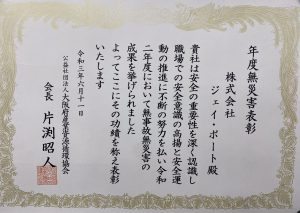 年度無災害表彰
株式会社
ジェイ・ポート殿
貴社は安全の重要性を深く認識し
職場での安全意識の高揚と安全運
動の推進に不断の努力を払い令和
二年度において無事故無災害の
成果を挙げられました
よってここにその功績を称え表彰
いたします
令和三年六月十一日
公益社団法人大阪府産業資源循環協会
会長 片渕昭人